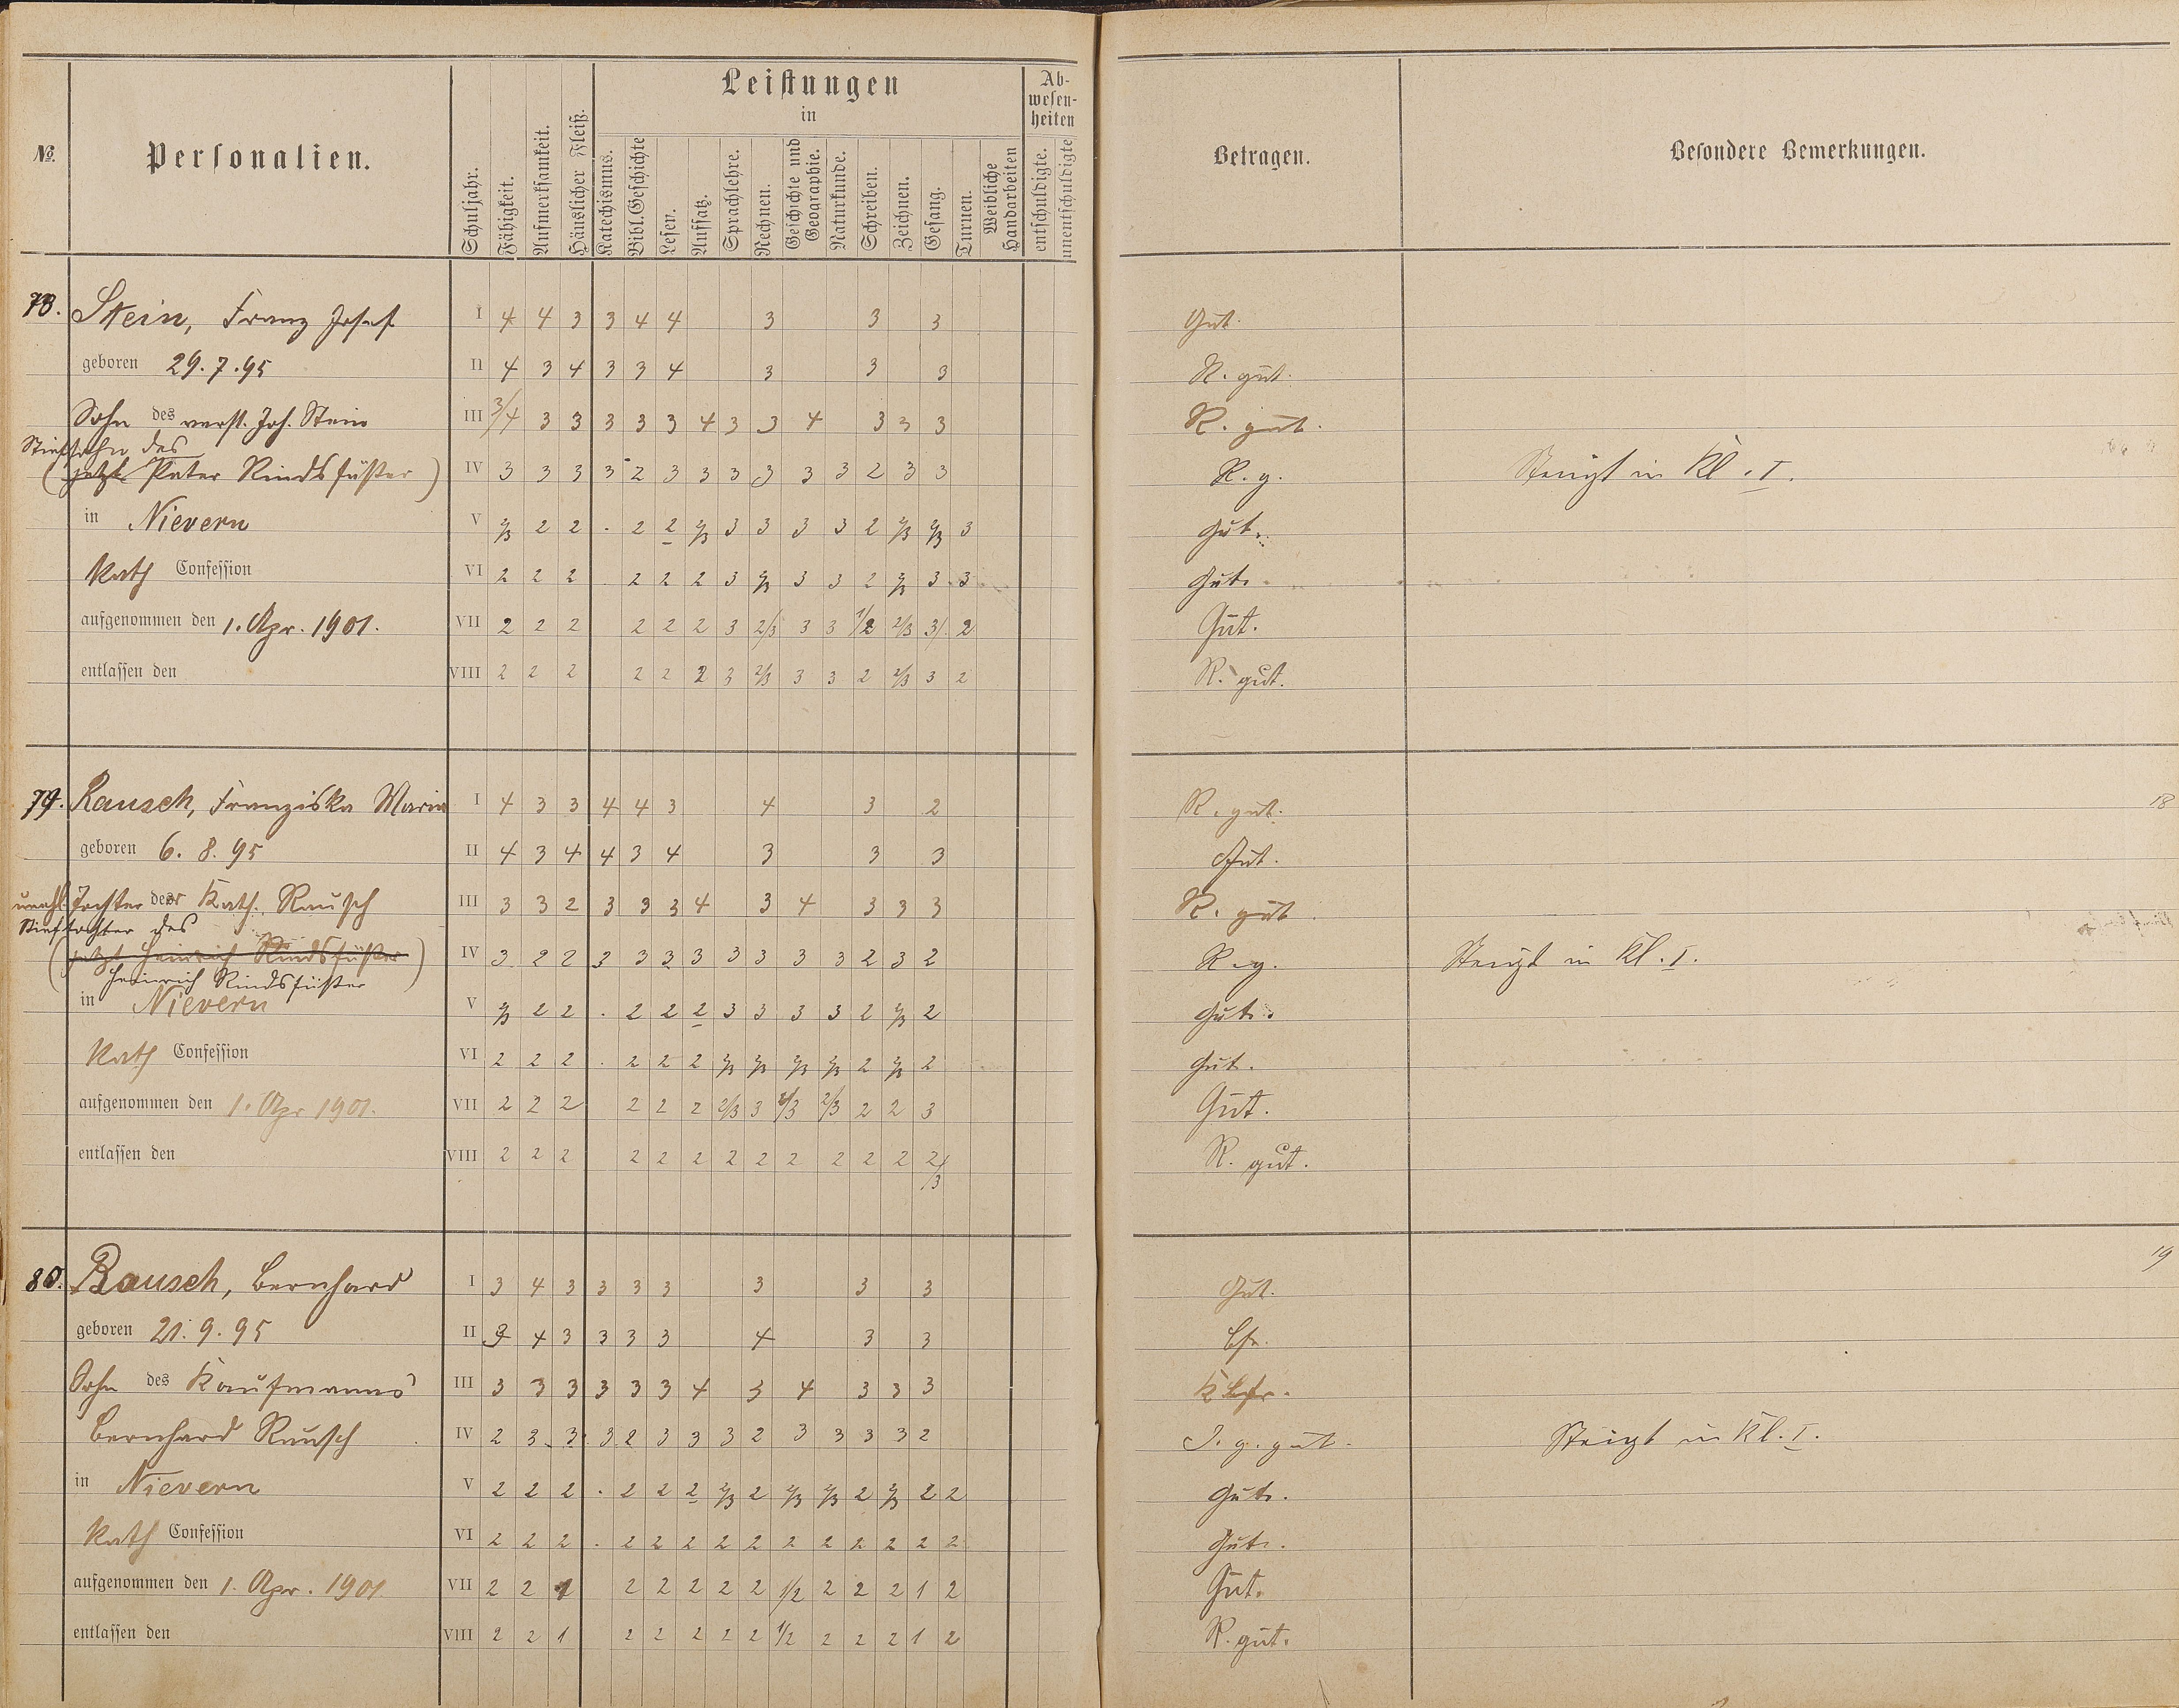 No. Personalien. Schuljahr. Fähigkeit. Aufmerksamkeit. Häuslicher Fleiß. Leistungen in Katechismus. Bibl. Geschichte Lesen. Aufsatz. Sprachlehre. Rechnen. Geschichte und Geographie. Naturkunde. Schreiben. Zeichnen. Gesang. Turnen. Weibliche Handarbeiten Ab-wesen-heiten entschuldigte. unentschuldigte Betragen. Besondere Bemerkungen.
78. Stein, Franz Josef I 4 4 3 3 4 4 3 3 3 Gut.
geboren 29.7.95 II 4 3 4 3 3 4 3 3 3 R. gut.
Sohn des verst. Joh. Stein III 3/4 3 3 3 3 3 4 3 3 4 3 3 3 R. gut.
Stiefsohn des
(jetzt Peter Rindsfüßer) IV 3 3 3 3 2 3 3 3 3 3 3 2 3 3 R. g. Steigt in Kl. I.
in Nievern V 2/3 2 2 . 2 2 2/3 3 3 3 3 2 2/3 2/3 3 Gut.
Kath Confession VI 2 2 2 . 2 2 2 3 2/3 3 3 2 2/3 3 3 Gut.
aufgenommen den 1. Apr. 1901. VII 2 2 2 2 2 2 3 2/3 3 3 1/2 2/3 3/. 2 Gut.
entlassen den VIII 2 2 2 2 2 2 3 2/3 3 3 2 2/3 3 2 R. gut.
79. Rausch, Franziska Maria I 4 3 3 4 4 3 4 3 2 R. gut. 18
geboren 6. 8. 95 II 4 3 4 4 3 4 3 3 3 Gut.
unehl. Tochter der Kath. Rausch III 3 3 2 3 3 3 4 3 4 3 3 3 R. gut
Stieftochter des
(jetzt Heinrich Rindsfüßer) IV 3 2 2 3 3 3 3 3 3 3 3 2 3 2 R. g. Steigt in Kl. I.
Heinrich Rindsfüßer
in Nievern V 2/3 2 2 . 2 2 2 3 3 3 3 2 2/3 2 Gut.
Kath Confession VI 2 2 2 . 2 2 2 2/3 2/3 2/3 2/3 2 2/3 2 Gut.
aufgenommen den 1. Apr 1901. VII 2 2 2 2 2 2 2/3 3 2/3 2/3 2 2 3 Gut.
entlassen den VIII 2 2 2 2 2 2 2 2 2 2 2 2 2/3 R. gut.
80. Rausch, Bernhard I 3 4 3 3 3 3 3 3 3 Gut. 19
geboren 21. 9. 95 II 3 4 3 3 3 3 4 3 3
Sohn des Kaufmanns III 3 3 3 3 3 3 4 3 4 3 3 3
Bernhard Rausch IV 2 3 3 3 2 3 3 3 2 3 3 3 3 2 I. g. gut. Steigt in Kl. I.
in Nievern V 2 2 2 . 2 2 2 2/3 2 2/3 2/3 2 2/3 2 2 Gut.
Kath Confession VI 2 2 2 . 2 2 2 2 2 2 2 2 2 2 2 Gut.
aufgenommen den 1. Apr. 1901 VII 2 2 1 2 2 2 2 2 1/2 2 2 2 1 2 Gut.
entlassen den VIII 2 2 1 2 2 2 2 2 1/2 2 2 2 1 2 R. gut.